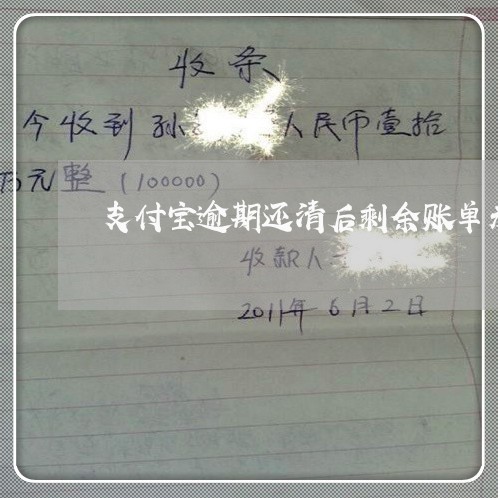 收条
今收到孙 人民币壹拾
万元整（100000）
支付宝逾期还清后剩余账单
收款人
2011年6月2日